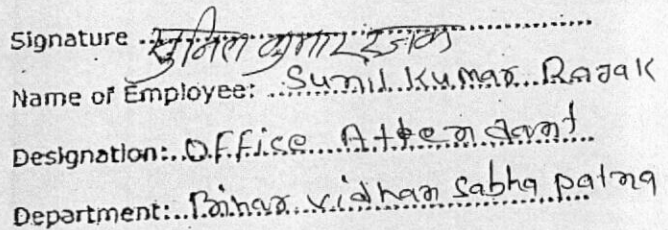 Signature सुनिल कुमार रजक
Name of Employee: Sunil Kumar Rajak
Designation: Office Attendant
Department: Bihar vidhan sabha patna